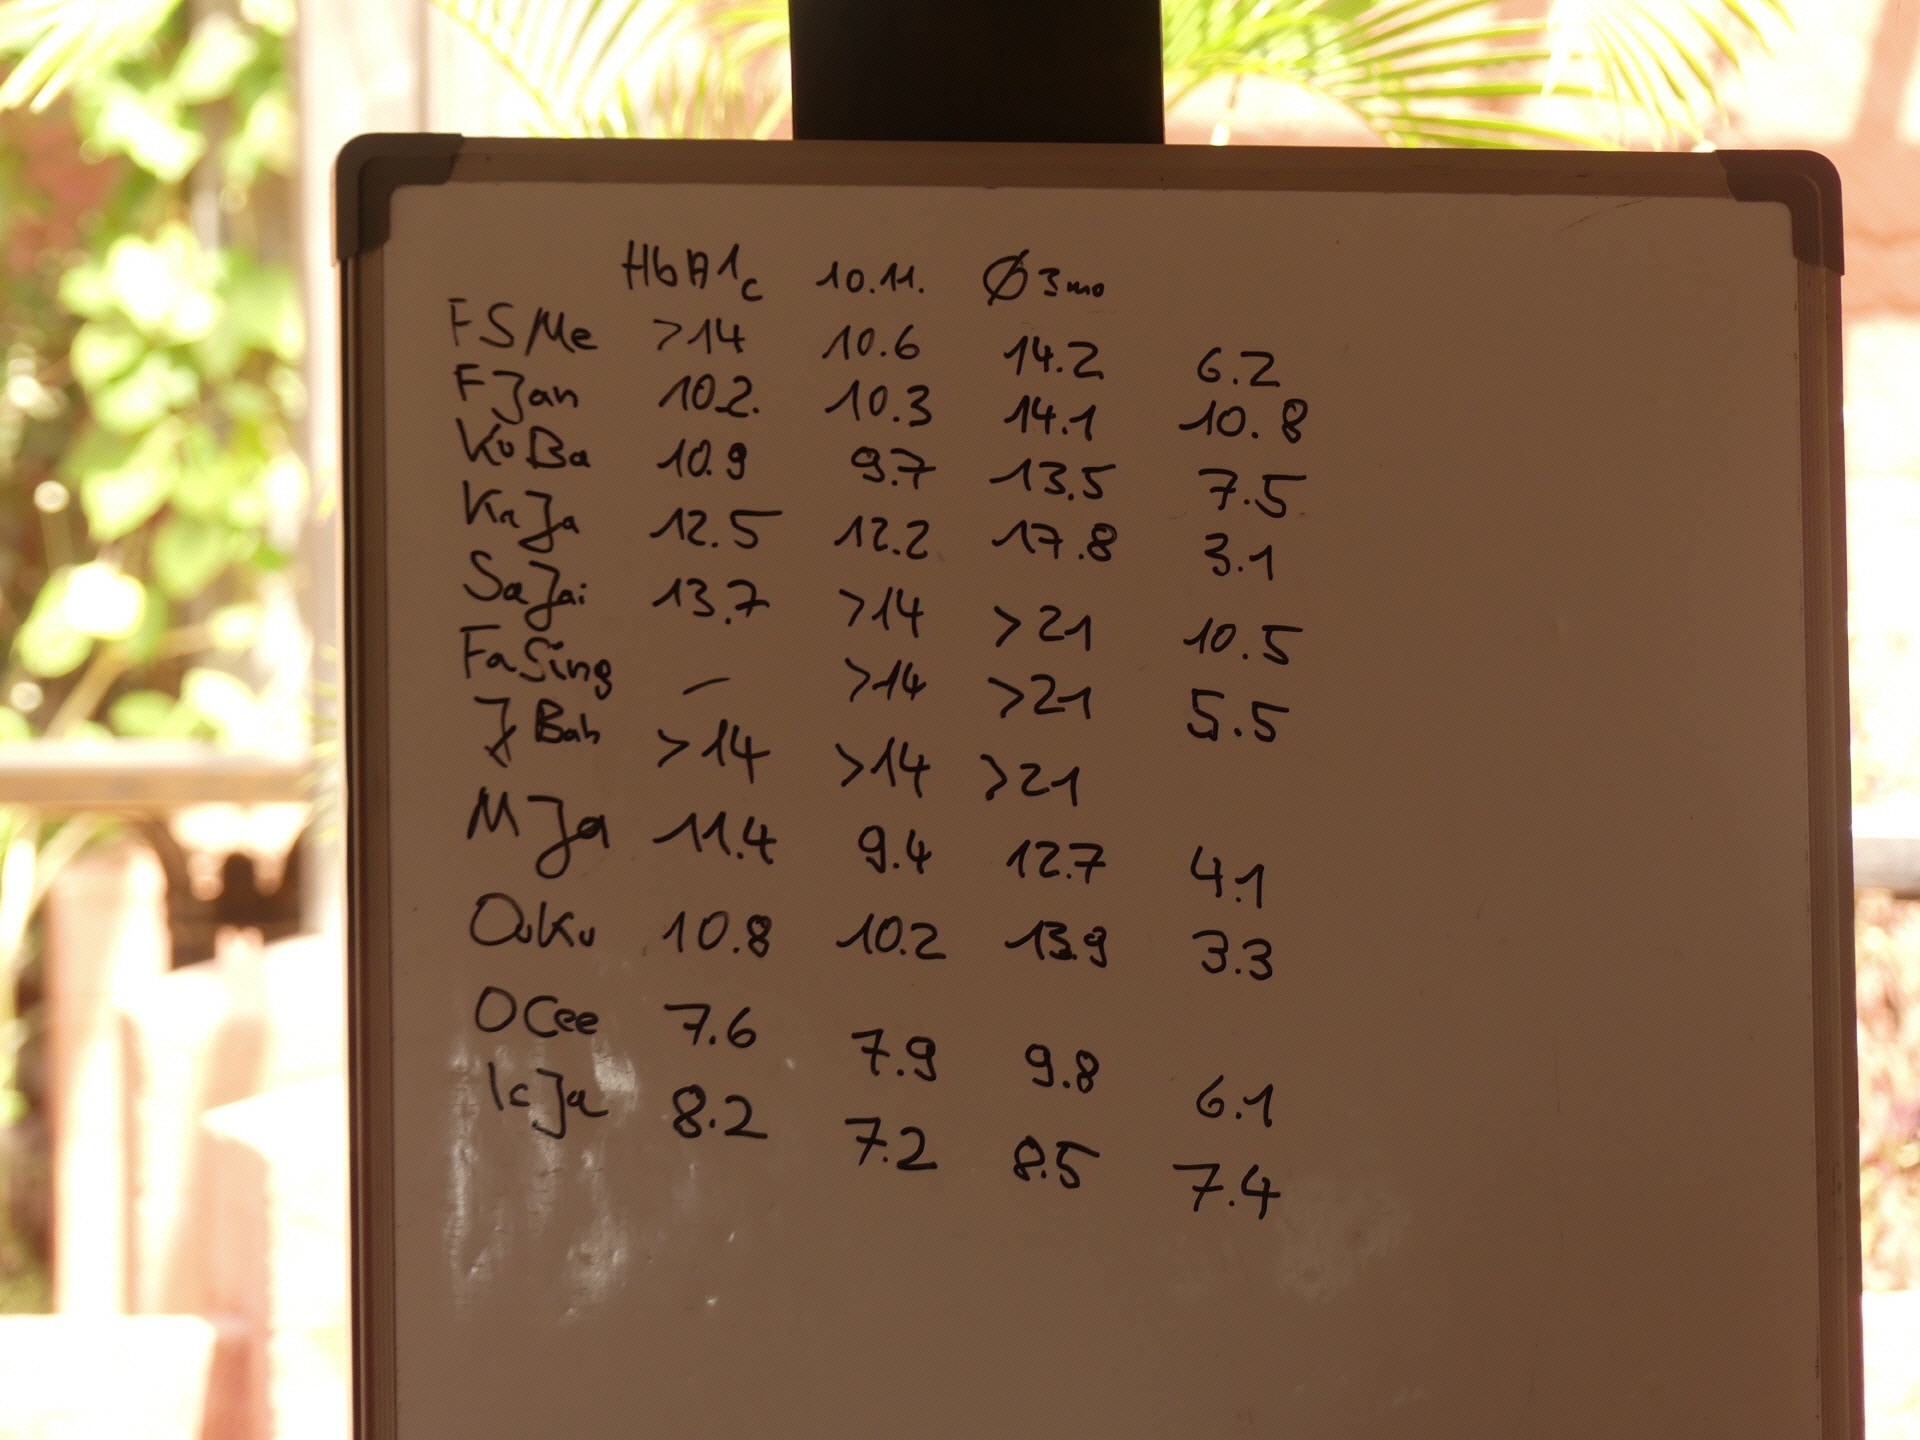 HbA1c 10.11. Ø 3mo
FSMe >14 10.6 14.2 6.2
FJan 10.2. 10.3 14.1 10.8
KuBa 10.9 9.7 13.5 7.5
KaJa 12.5 12.2 17.8 3.1
SaJai 13.7 >14 >21 10.5
FaSing – >14 >21 5.5
J Bah >14 >14 >21
MJa 11.4 9.4 12.7 4.1
OuKu 10.8 10.2 13.9 3.3
OCee 7.6 7.9 9.8 6.1
IcJa 8.2 7.2 8.5 7.4